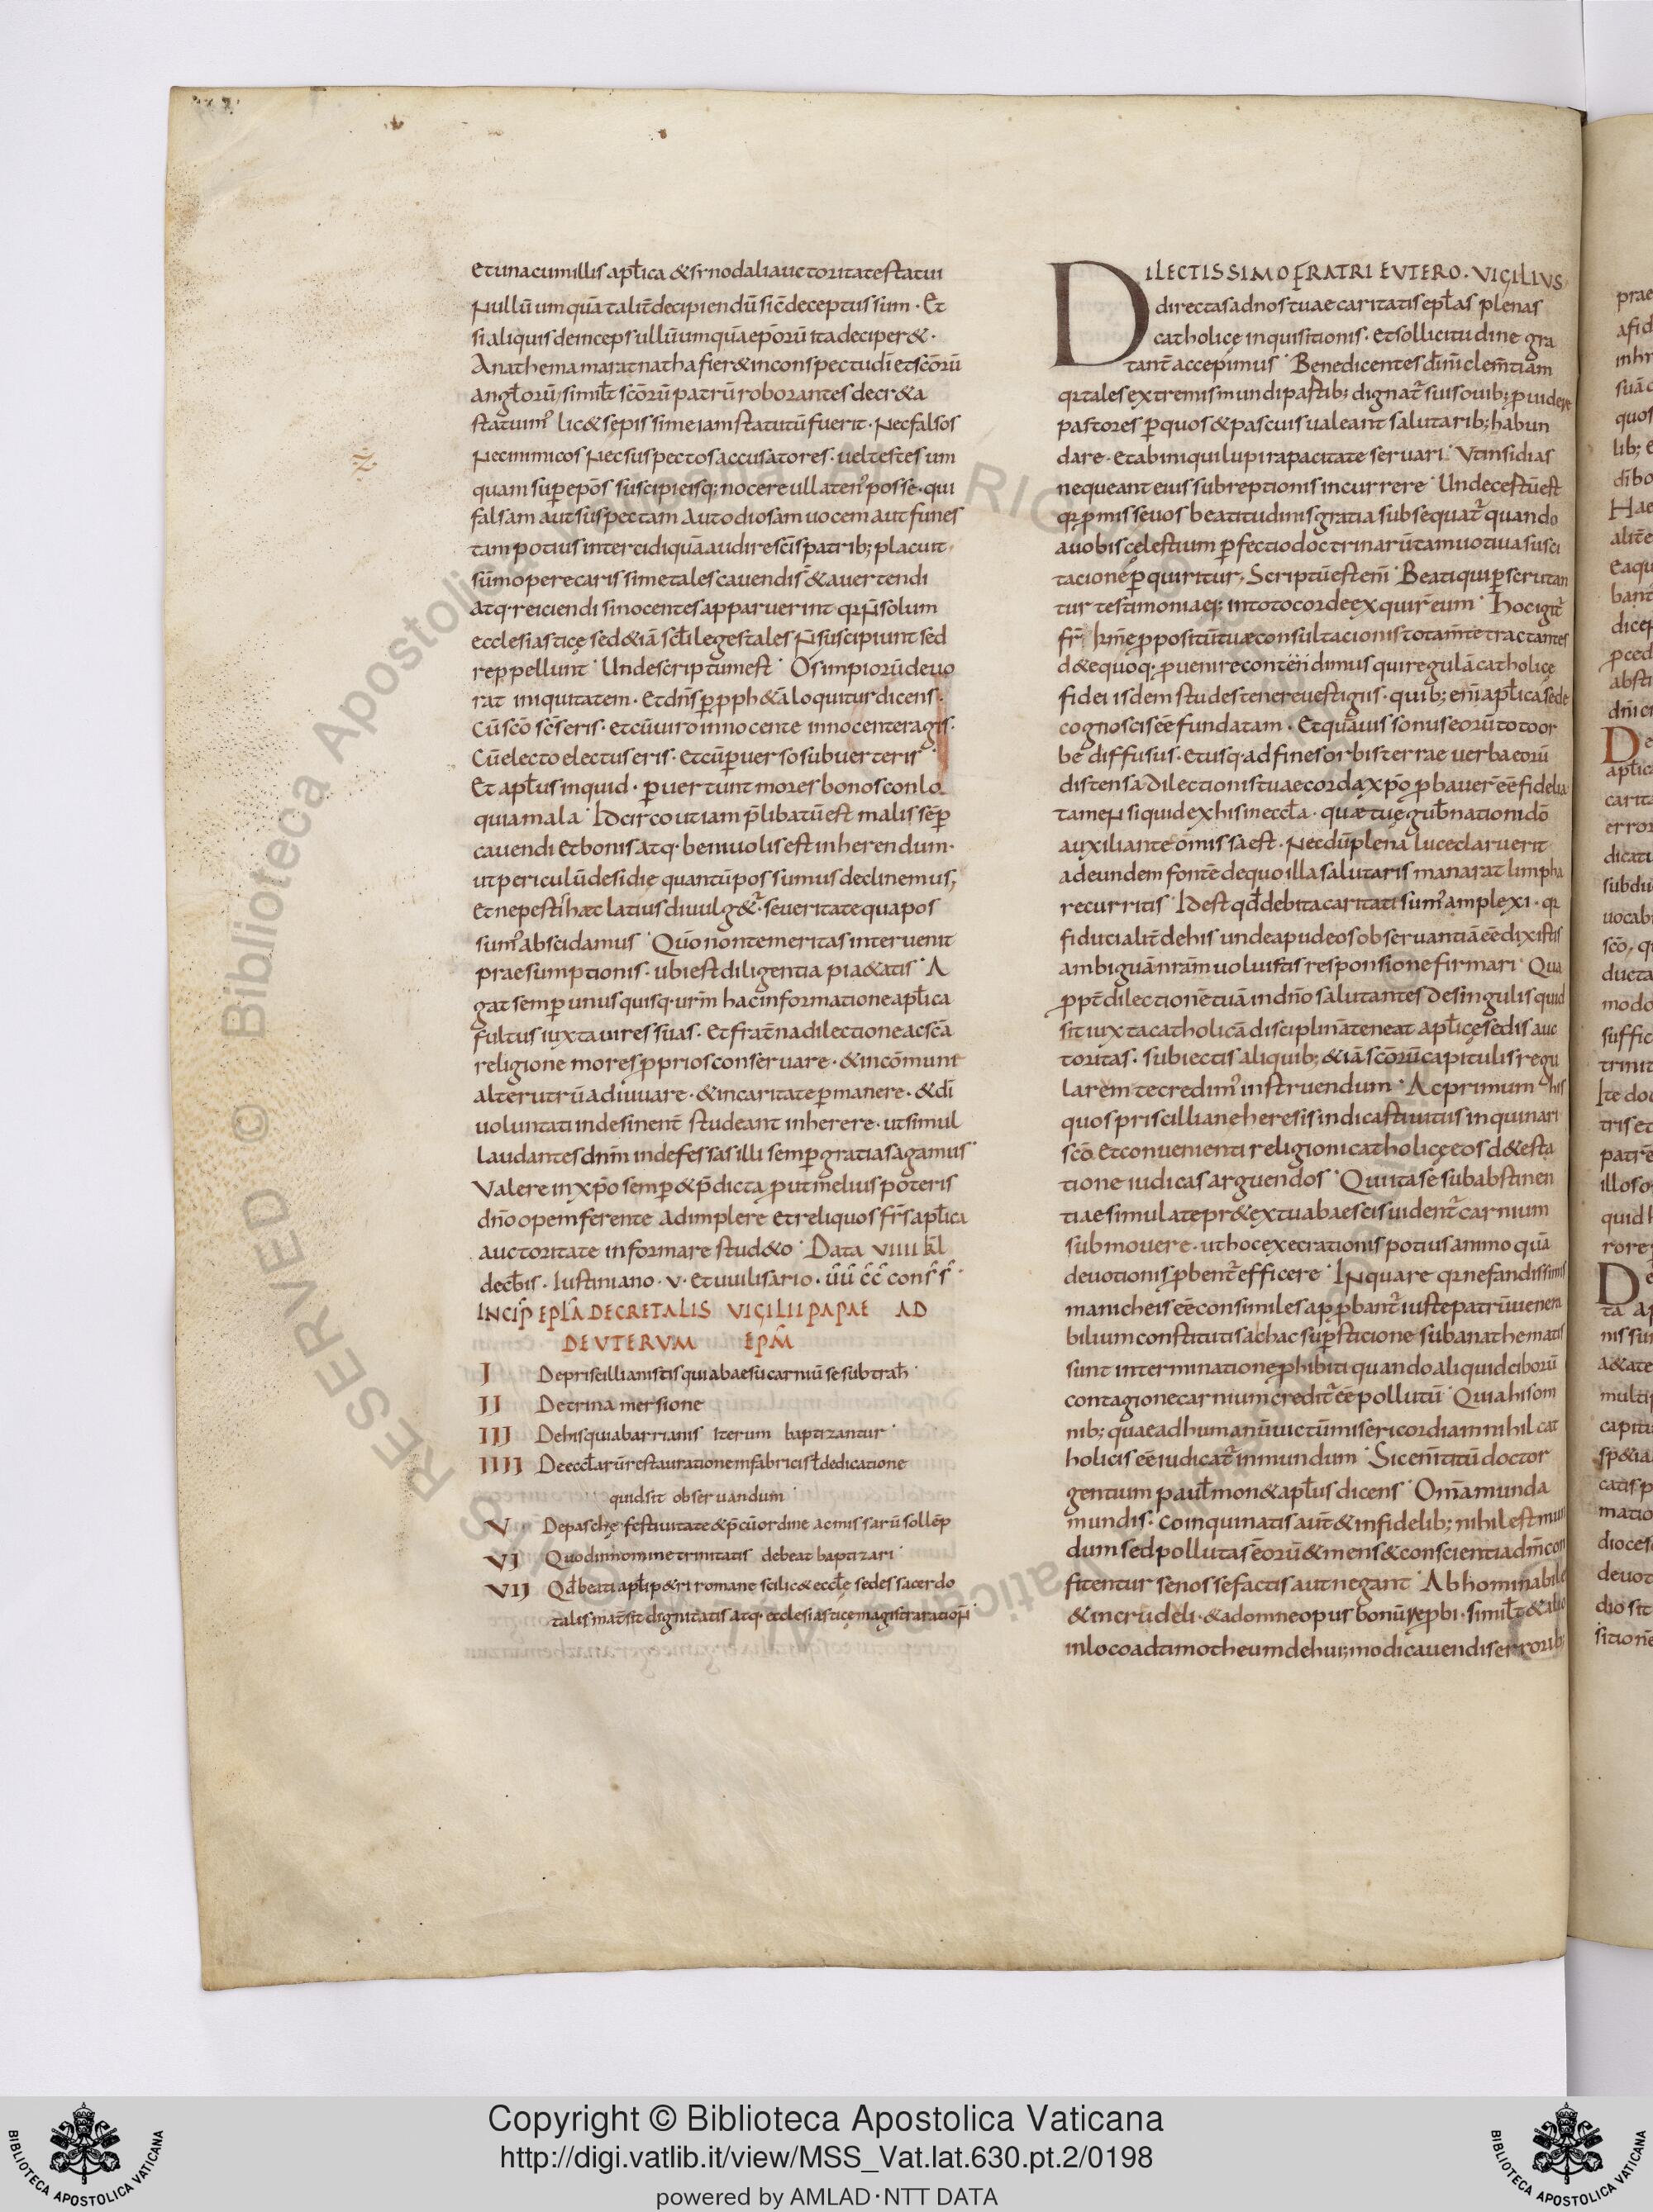 Et una cum illis apl̄ica & sinodali auctoritate statui
Nullū umquā talit̄ decipiendū sic̄ deceptus sum · Et
si aliquis deinceps ullū umquā ep̄orū ita deciper& ·
Anathema maranatha fier& in conspectu dī et sc̄orū
angl̄orū, simil̄t sc̄orū patrū roborantes decr&a
statuim᾽ lic& sepissime iam statutū fuerit · Nec falsos
Nec inimicos Nec suspectos accusatores · uel testes um
quam sup ep̄os suscipi eisq; nocere ullaten᾽ posse · qui
falsam aut suspectam aut odiosam uocem aut funes
tam potius intercidi quā audire sc̄is patrib; placuit ·
sūmopere carissime tales cauendi s̄ & auertendi
atq· reiciendi si nocentes apparuerint qr N̄ solum
ecclesiasticę sed & iā sc̄li leges tales N̄ suscipiunt sed
reppellunt · Unde scriptum est · Os impiorū deuo
rat iniquitatem · Et dn̄s p pph&ā loquitur dicens ·
Cū sc̄o sc̄s eris · et cū uiro innocente innocenter agis ·
Cū electo electus eris · et cū puerso subuerteris
Et apl̄us inquid · puertunt mores bonos conlo
quia mala · Idcirco ut iam p̄libatū est malis sēp
cauendi Et bonis atq· beniuolis est inherendum ·
ut periculū desidię quantū possumus declinemus,
Et ne pestis hæc latius diuulg&ur · seueritate qua pos
sum᾽ abscidamus · Quō non temeritas interuenit
praesumptionis · ubi est diligentia pi&atis · A
gat semp unusquisq· urm̄ hac informatione apl̄ica
fultus iuxta uires suas · Et frat̄na dilectione ac sc̄a
religione mores pprios conseruare · & in cōmune
alterutrū adiuuare · & in caritate pmanere · & dī
uoluntati indesinent̄ studeant inherere · ut simul
laudantes dn̄m indefessas illi semp gratias agamus ·
Valere in xp̄o semp & p̄dicta put melius poteris
dn̄o opem ferente adimplere Et reliquos fr̄s apl̄ica
auctoritate informare stud&o · Data VIIII kl̄
decb̄is · Iustiniano · V · Et uuilisario · ūū c̄c̄ cons̄s̄ ·
INCIP̄ EPL̄A DECRETALIS VIGILII PAPAE AD
DEUTERUM EPM̄
I De priscillianistis qui ab aesu carniū se subtrah̄ ·
II De trina mersione
III De his qui ab arrianis iterum baptizantur ·
IIII De eccl̄arū restauratione in fabricis ł dedicatione
quid sit obseruandum ·
V De paschę festiuitate & p̄cū ordine ac missarū sollēp
VI Quod in nomine trinitatis debeat baptizari ·
VII Qd̄ beati apl̄i p&ri romane scilic& eccl̄ę sedes sacerdo
talis mat̄ sit dignitatis atq· ecclesiasticę magistra rationi ·
DILECTISSIMO FRATRI EUTERO · VIGILIUS
directas ad nos tuae caritatis epl̄as plenas
catholicę inquisitionis · et sollicitudine gra
tant̄ accepimus · Benedicentes dīni clem̄tiam
qr tales extremis mundi partib; dignat᾽ suis ouib; puidere
pastores p quos & pascuis ualeant salutarib; habun
dare · et ab iniqui lupi rapacitate seruari · Ut insidias
nequeant eius subreptionis incurrere · Unde certū est
qr pmissae uos beatitudinis gratia subsequat᾽ quando
a uobis cęlestium pfectio doctrinarū tam uotiua susci
tacione pquiritur, Scriptū est eni · Beati qui pscrutan
tur testimonia ei; in toto corde exquir̄ eum · Hoc igit᾽
fr̄ km̄e ppositū tuæ consultacionis totam̄te tractantes
d& equoq· puenire contēndimus qui regulā catholicę
fidei isdem studes tenere uestigiis · quib; eni apl̄ica sede
cognosci sēe fundatam · Et quāuis sonus eorū toto or
be diffusus · et usq· ad fines orbis terrae uerba eorū
distensa dilectionis tuae corda xp̄o pbauer̄ ēe fidelia
tamen si quid ex his in eccl̄a · quæ tuę gub̄nationi dō
auxiliante omissa est · Necdū plena luce claruerit
ad eundem fontē de quo illa salutaris manarat limpha
recurritis · Id est qd̄ debita caritati sum᾽ amplexi · qr
fiducialit̄ de his unde apud eos obseruantiā ēe dixistis
ambiguā nrām uoluistis responsione firmari · Qua
ppt̄ dilectionē tuā in dn̄o salutantes De singulis quid
sit iuxta catholicā disciplinā teneat apl̄icę sedis auc
toritas · subiectis aliquib; & iā sc̄orū capitulis regu
larem te credim᾽ instruendum · Ac primum his
quos priscilliane heresis indicasti uitiis inquinari
sc̄o Et conuenienti religioni catholicę eos d&esta
tione iudicas arguendos · Qui ita se sub abstinen
tiae simulate pr&extu ab aescis uident᾽ carnium
submouere · ut hoc execrationis potius animo quā
deuotionis pbent᾽ efficere · In quare qr nefandissimis
manicheis ēe consimiles apbant᾽ iuste patrū uenera
bilium constitutis ac hac supsticione sub anathematis
sunt interminatione phibiti quando aliquid ciborū
contagione carnium credit᾽ ēe pollutū · Quia his om
nib; quae ad humanū uictū misericordiam nihil cat
holicis ēe iudicat᾽ inmundum · Sic eni titū doctor
gentium paul᾽ mon& apl̄us dicens · Omā munda
mundis · coinquinatis aut̄ & infidelib; nihil est mun
dum sed polluta s̄ eorū & mens & conscientia dm̄ con
fitentur se nosse factis aut negant · Abhominabile
& incrudeli · & ad omne opus bonū repbi · simil̄t & alio
in loco ad timotheum de hui;modi cauendis errorib;
Copyright © Biblioteca Apostolica Vaticana
http://digi.vatlib.it/view/MSS_Vat.lat.630.pt.2/0198
powered by AMLAD·NTT DATA
BIBLIOTECA APOSTOLICA VATICANA
BIBLIOTECA APOSTOLICA VATICANA